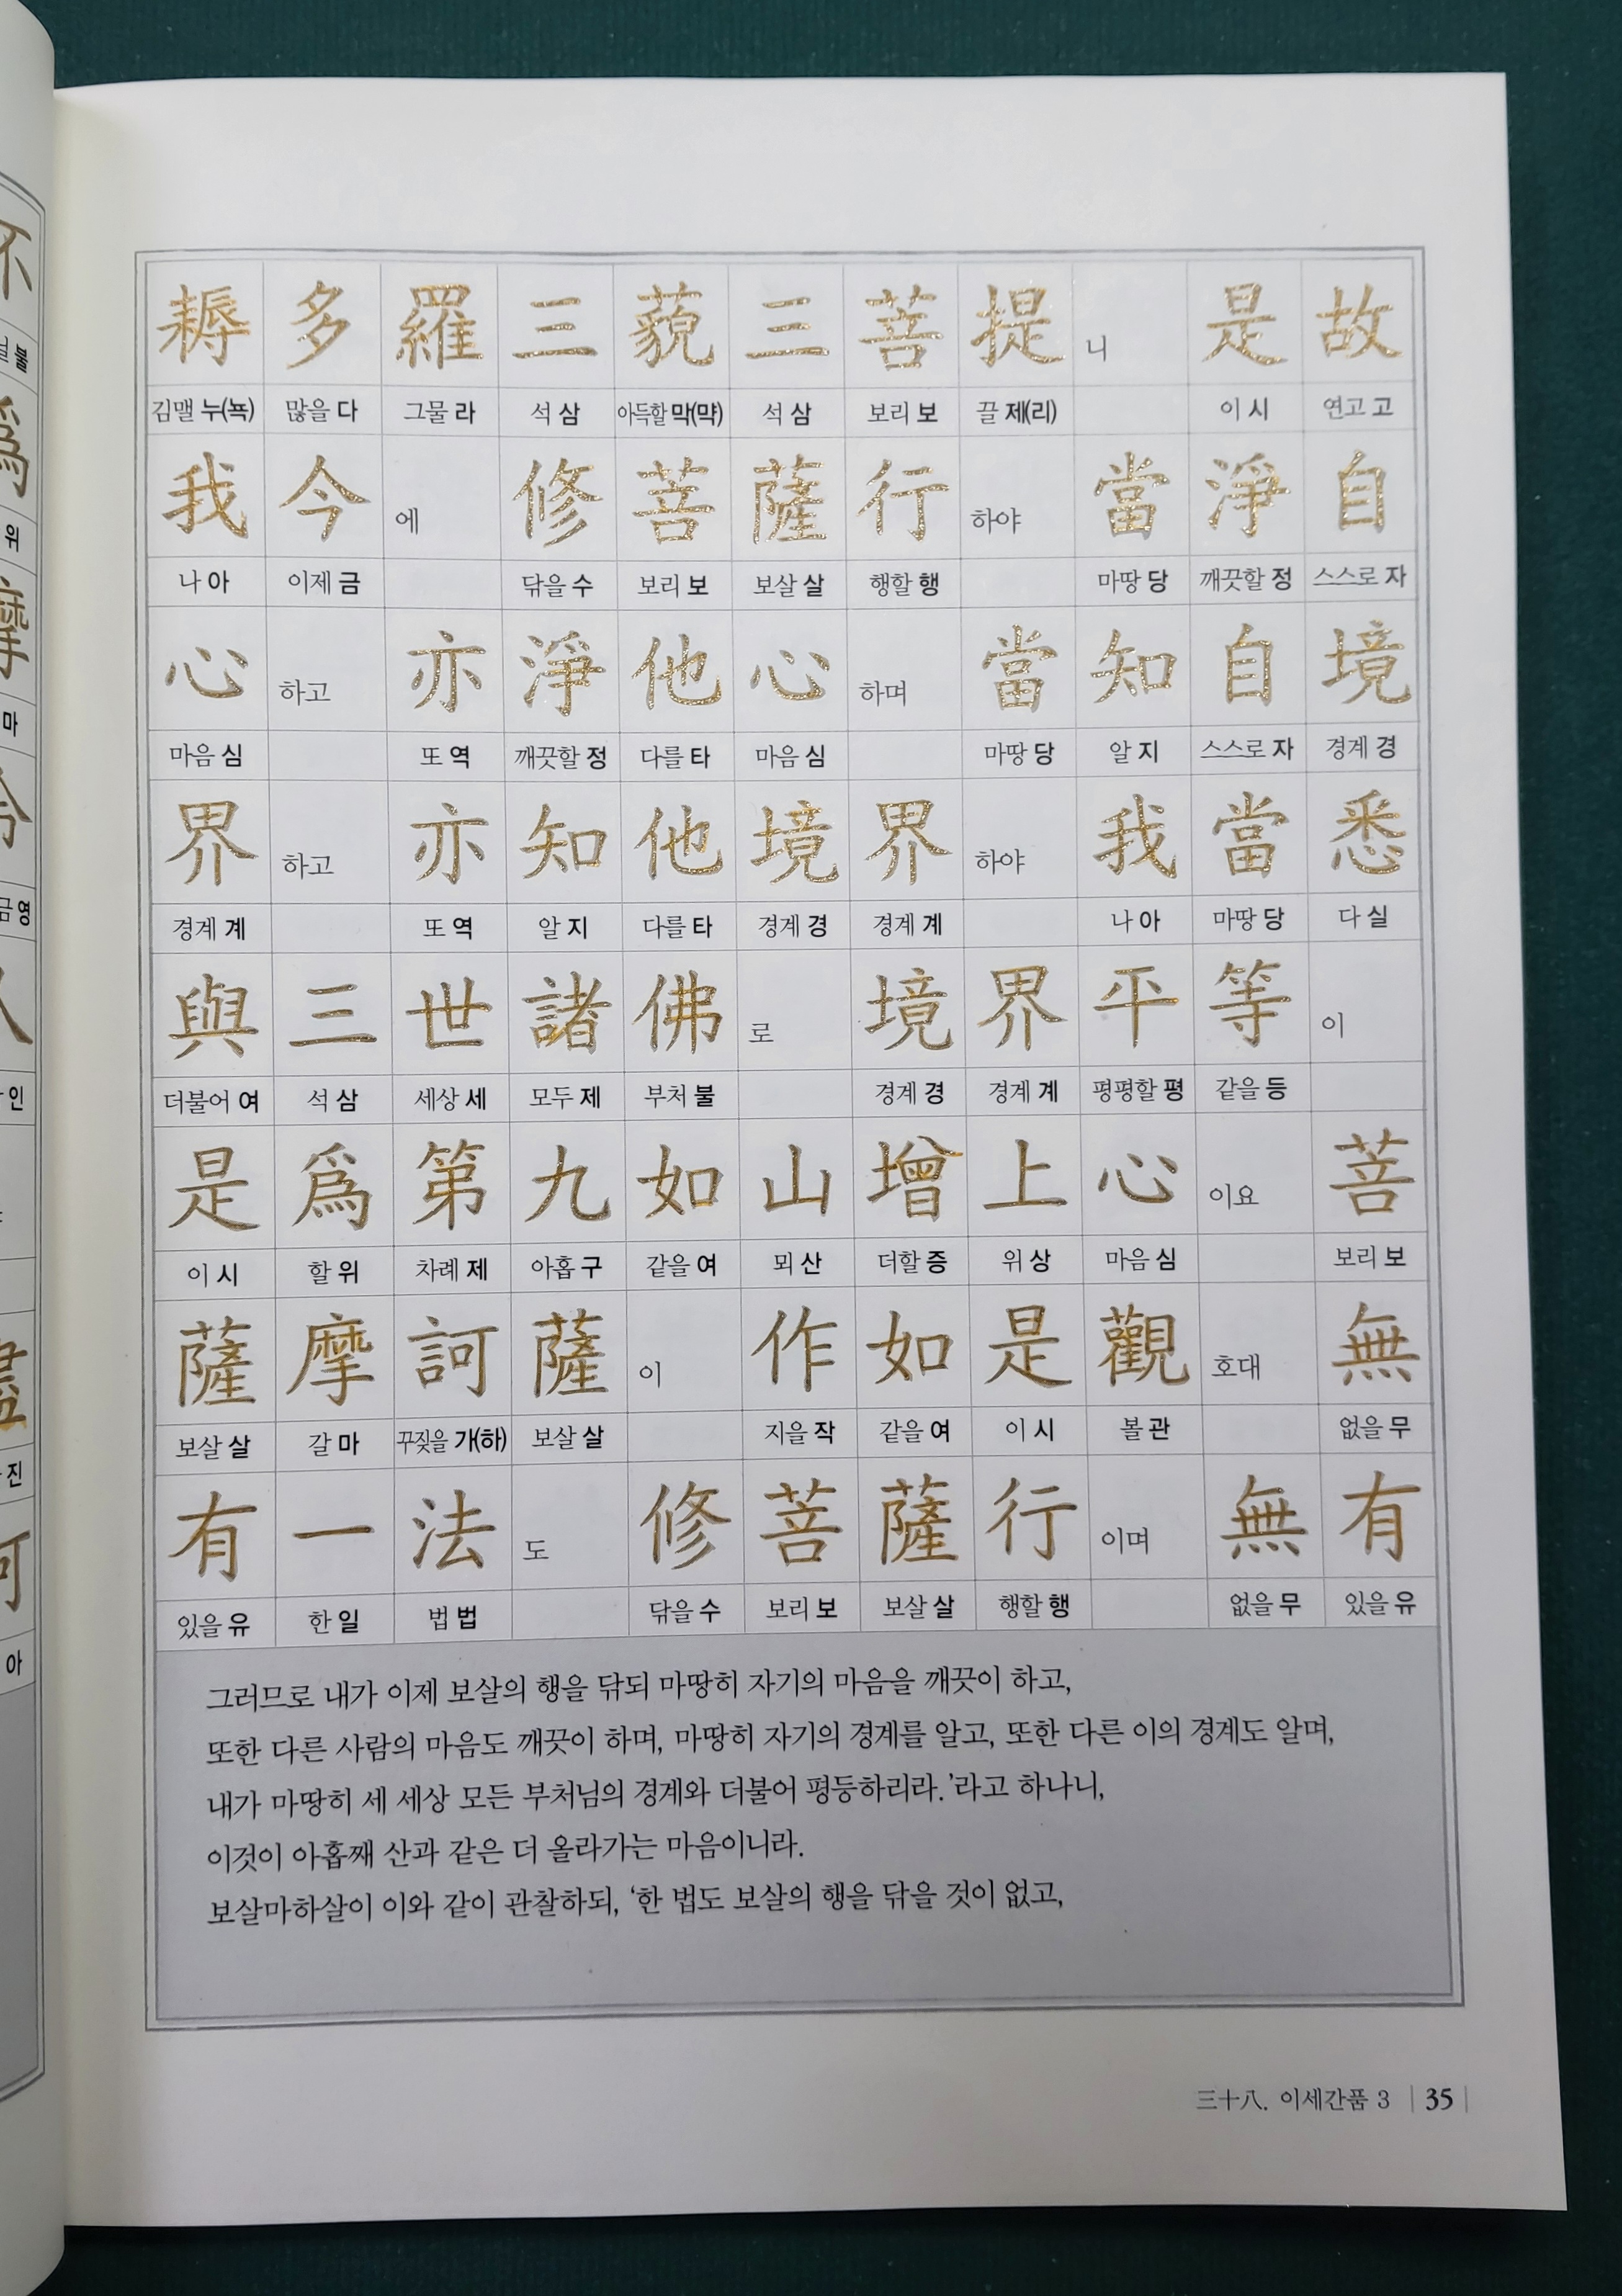 耨 多 羅 三 藐 三 菩 提 니 是 故
김맬 누(뇩) 많을 다 그물 라 석 삼 아득할 막(먁) 석 삼 보리 보 끌 제(리) 이 시 연고 고
我 今 에 修 菩 薩 行 하야 當 淨 自
나 아 이제 금 닦을 수 보리 보 보살 살 행할 행 마땅 당 깨끗할 정 스스로 자
心 하고 亦 淨 他 心 하며 當 知 自 境
마음 심 또 역 깨끗할 정 다를 타 마음 심 마땅 당 알 지 스스로 자 경계 경
界 하고 亦 知 他 境 界 하야 我 當 悉
경계 계 또 역 알 지 다를 타 경계 경 경계 계 나 아 마땅 당 다 실
與 三 世 諸 佛 로 境 界 平 等 이
더불어 여 석 삼 세상 세 모두 제 부처 불 경계 경 경계 계 평평할 평 같을 등
是 爲 第 九 如 山 增 上 心 이요 菩
이 시 할 위 차례 제 아홉 구 같을 여 뫼 산 더할 증 위 상 마음 심 보리 보
薩 摩 訶 薩 이 作 如 是 觀 호대 無
보살 살 갈 마 꾸짖을 가(하) 보살 살 지을 작 같을 여 이 시 볼 관 없을 무
有 一 法 도 修 菩 薩 行 이며 無 有
있을 유 한 일 법 법 닦을 수 보리 보 보살 살 행할 행 없을 무 있을 유
그러므로 내가 이제 보살의 행을 닦되 마땅히 자기의 마음을 깨끗이 하고,
또한 다른 사람의 마음도 깨끗이 하며, 마땅히 자기의 경계를 알고, 또한 다른 이의 경계도 알며,
내가 마땅히 세 세상 모든 부처님의 경계와 더불어 평등하리라.’라고 하나니,
이것이 아홉째 산과 같은 더 올라가는 마음이니라.
보살마하살이 이와 같이 관찰하되, ‘한 법도 보살의 행을 닦을 것이 없고,
三十八. 이세간품 3 | 35 |